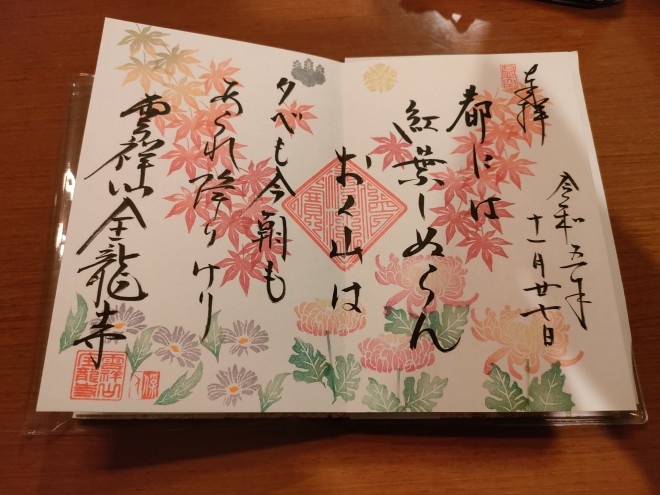 奉拝
令和五年
十一月廿七日
都には
紅葉しぬらん
おく山は
夕べも今朝も
あられ降りけり
雲祥山金龍寺